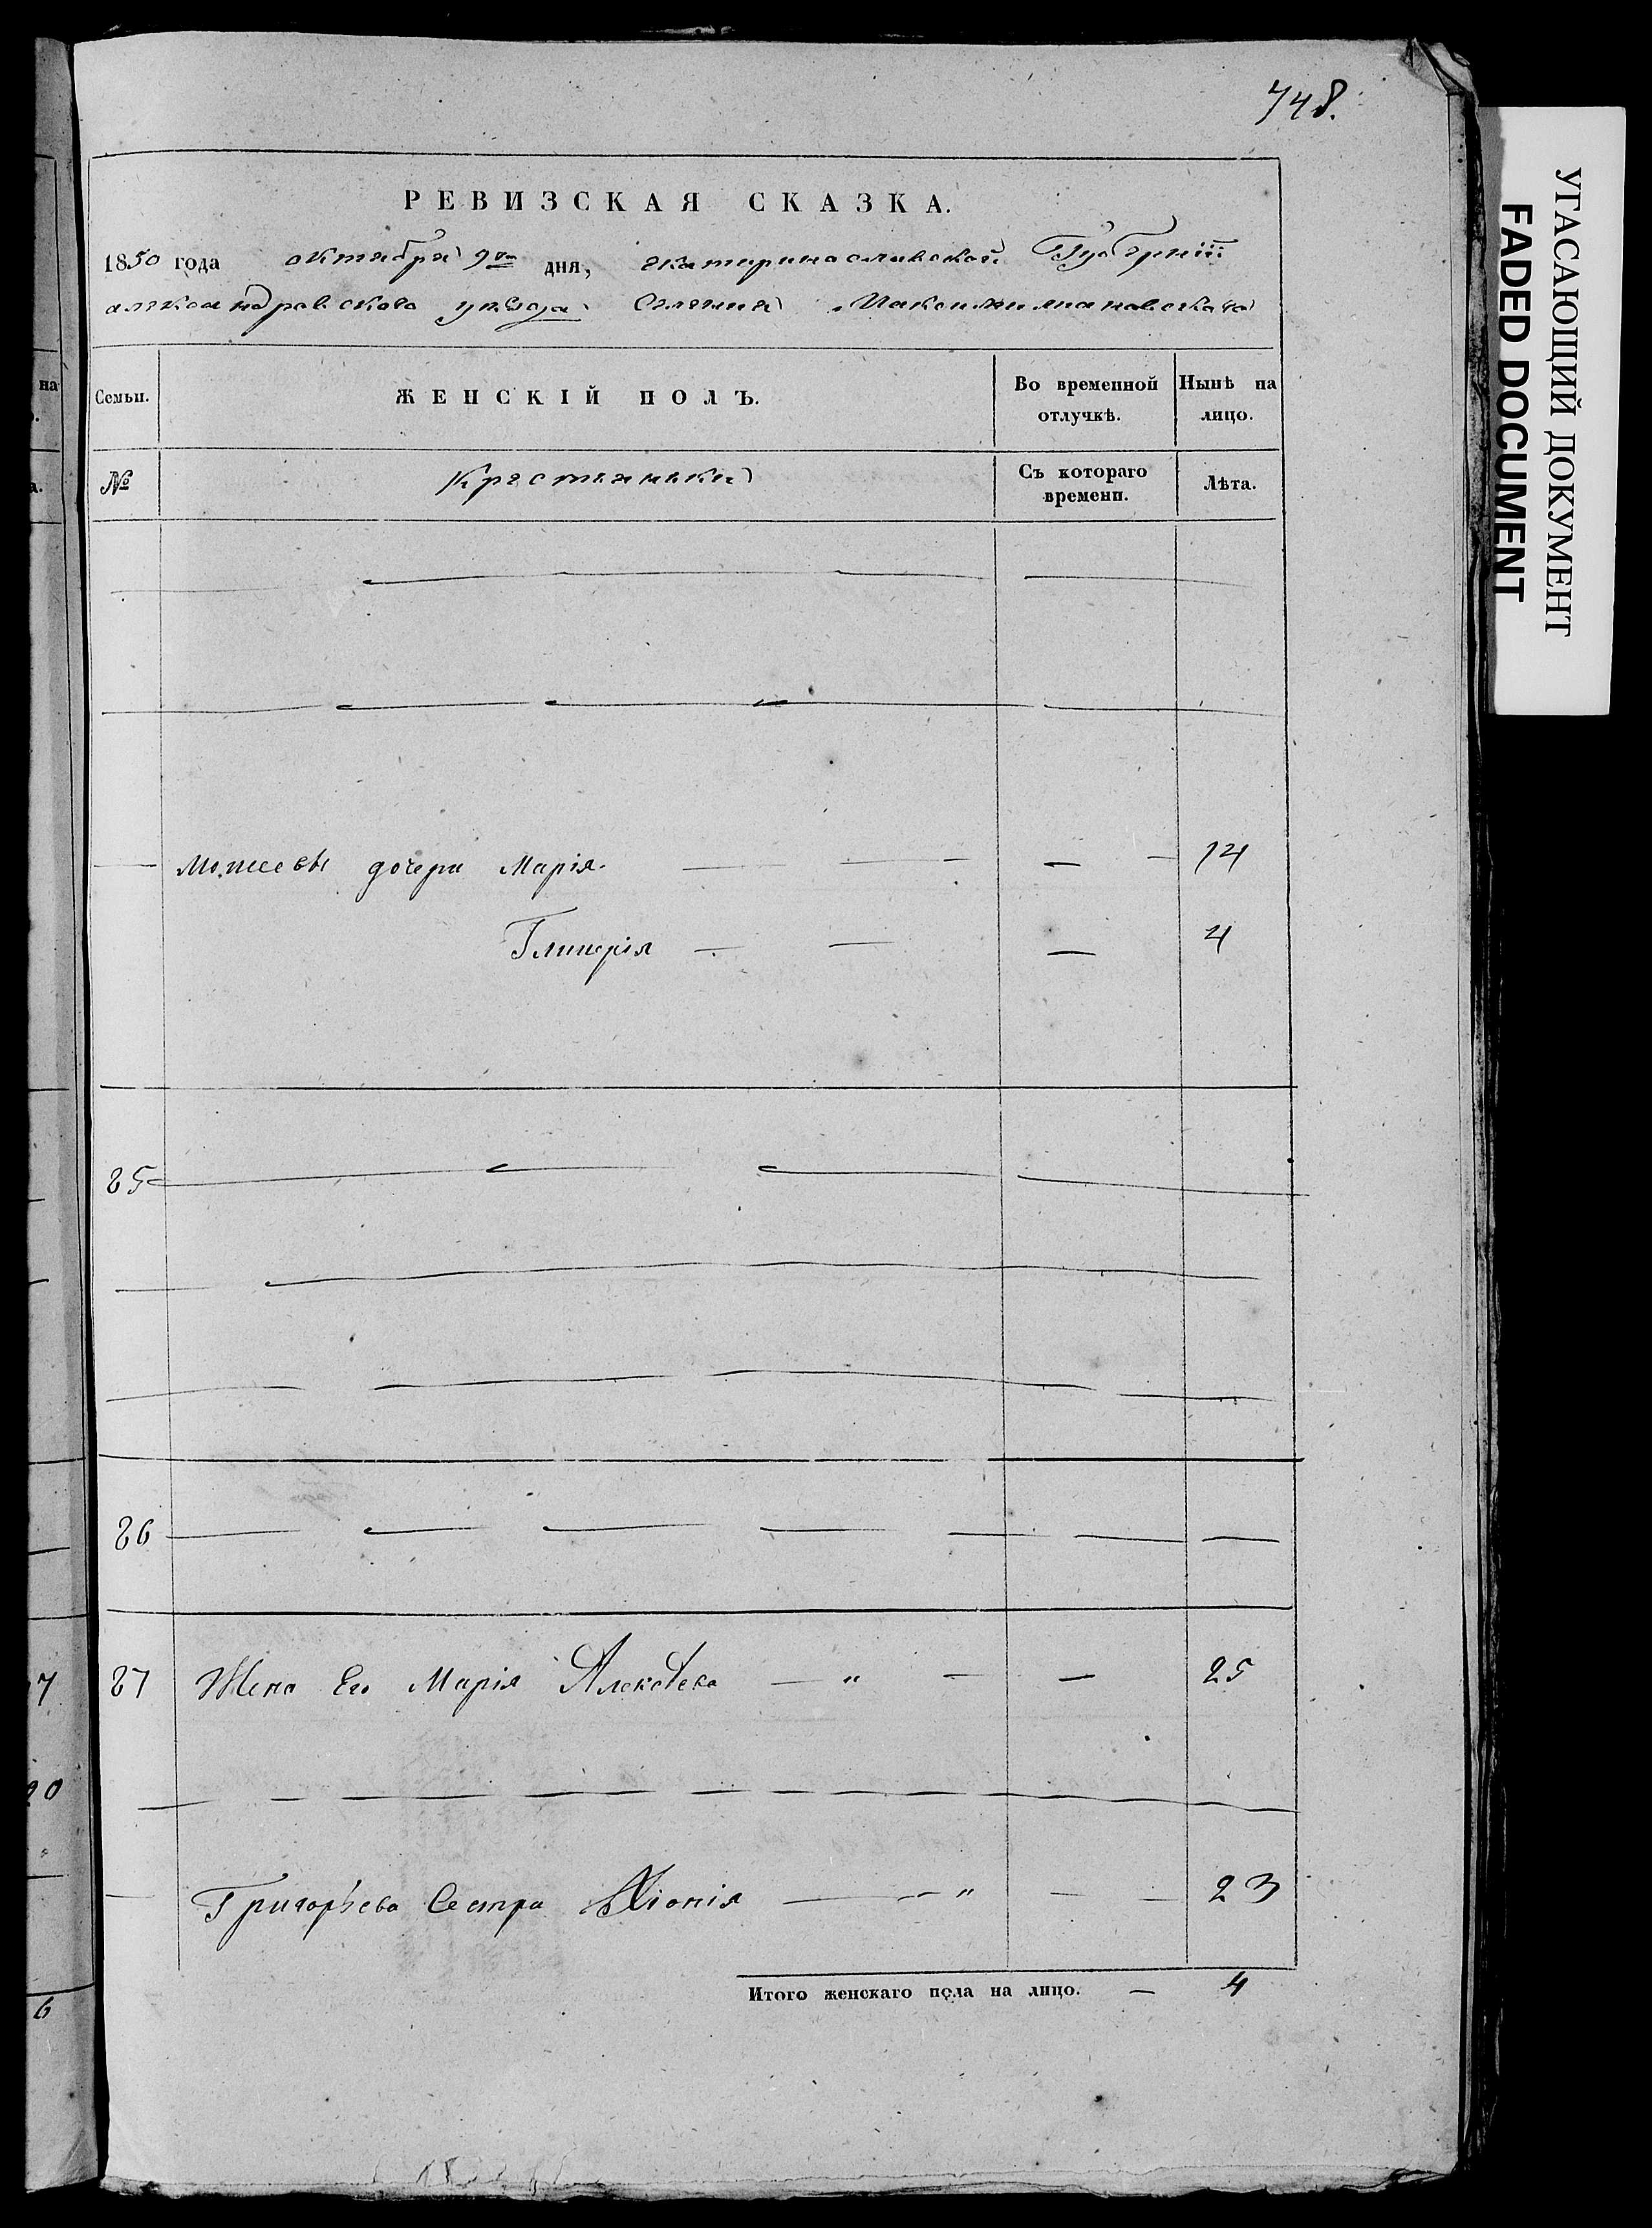 748.
РЕВИЗСКАЯ СКАЗКА.
1850 года октября 9го дня, екатеринославской Губернии
александровскаго уезда Селения Максимилиановскаго
Семьи. ЖЕНСКІЙ ПОЛЪ. Во временной отлучкѣ. Нынѣ на лицо.
№ Крестьянки Съ котораго времени. Лѣта.
Моисеевы дочери Марія — — — — — 14
Гликерія — — — 4
25
26
27 Жена Его Марія Алексѣева — " — — 25
Григорьева Сестра Хіонія — — " — — 23
Итого женскаго пола на лицо. — 4
УГАСАЮЩИЙ ДОКУМЕНТ
FADED DOCUMENT
на
7
20
6